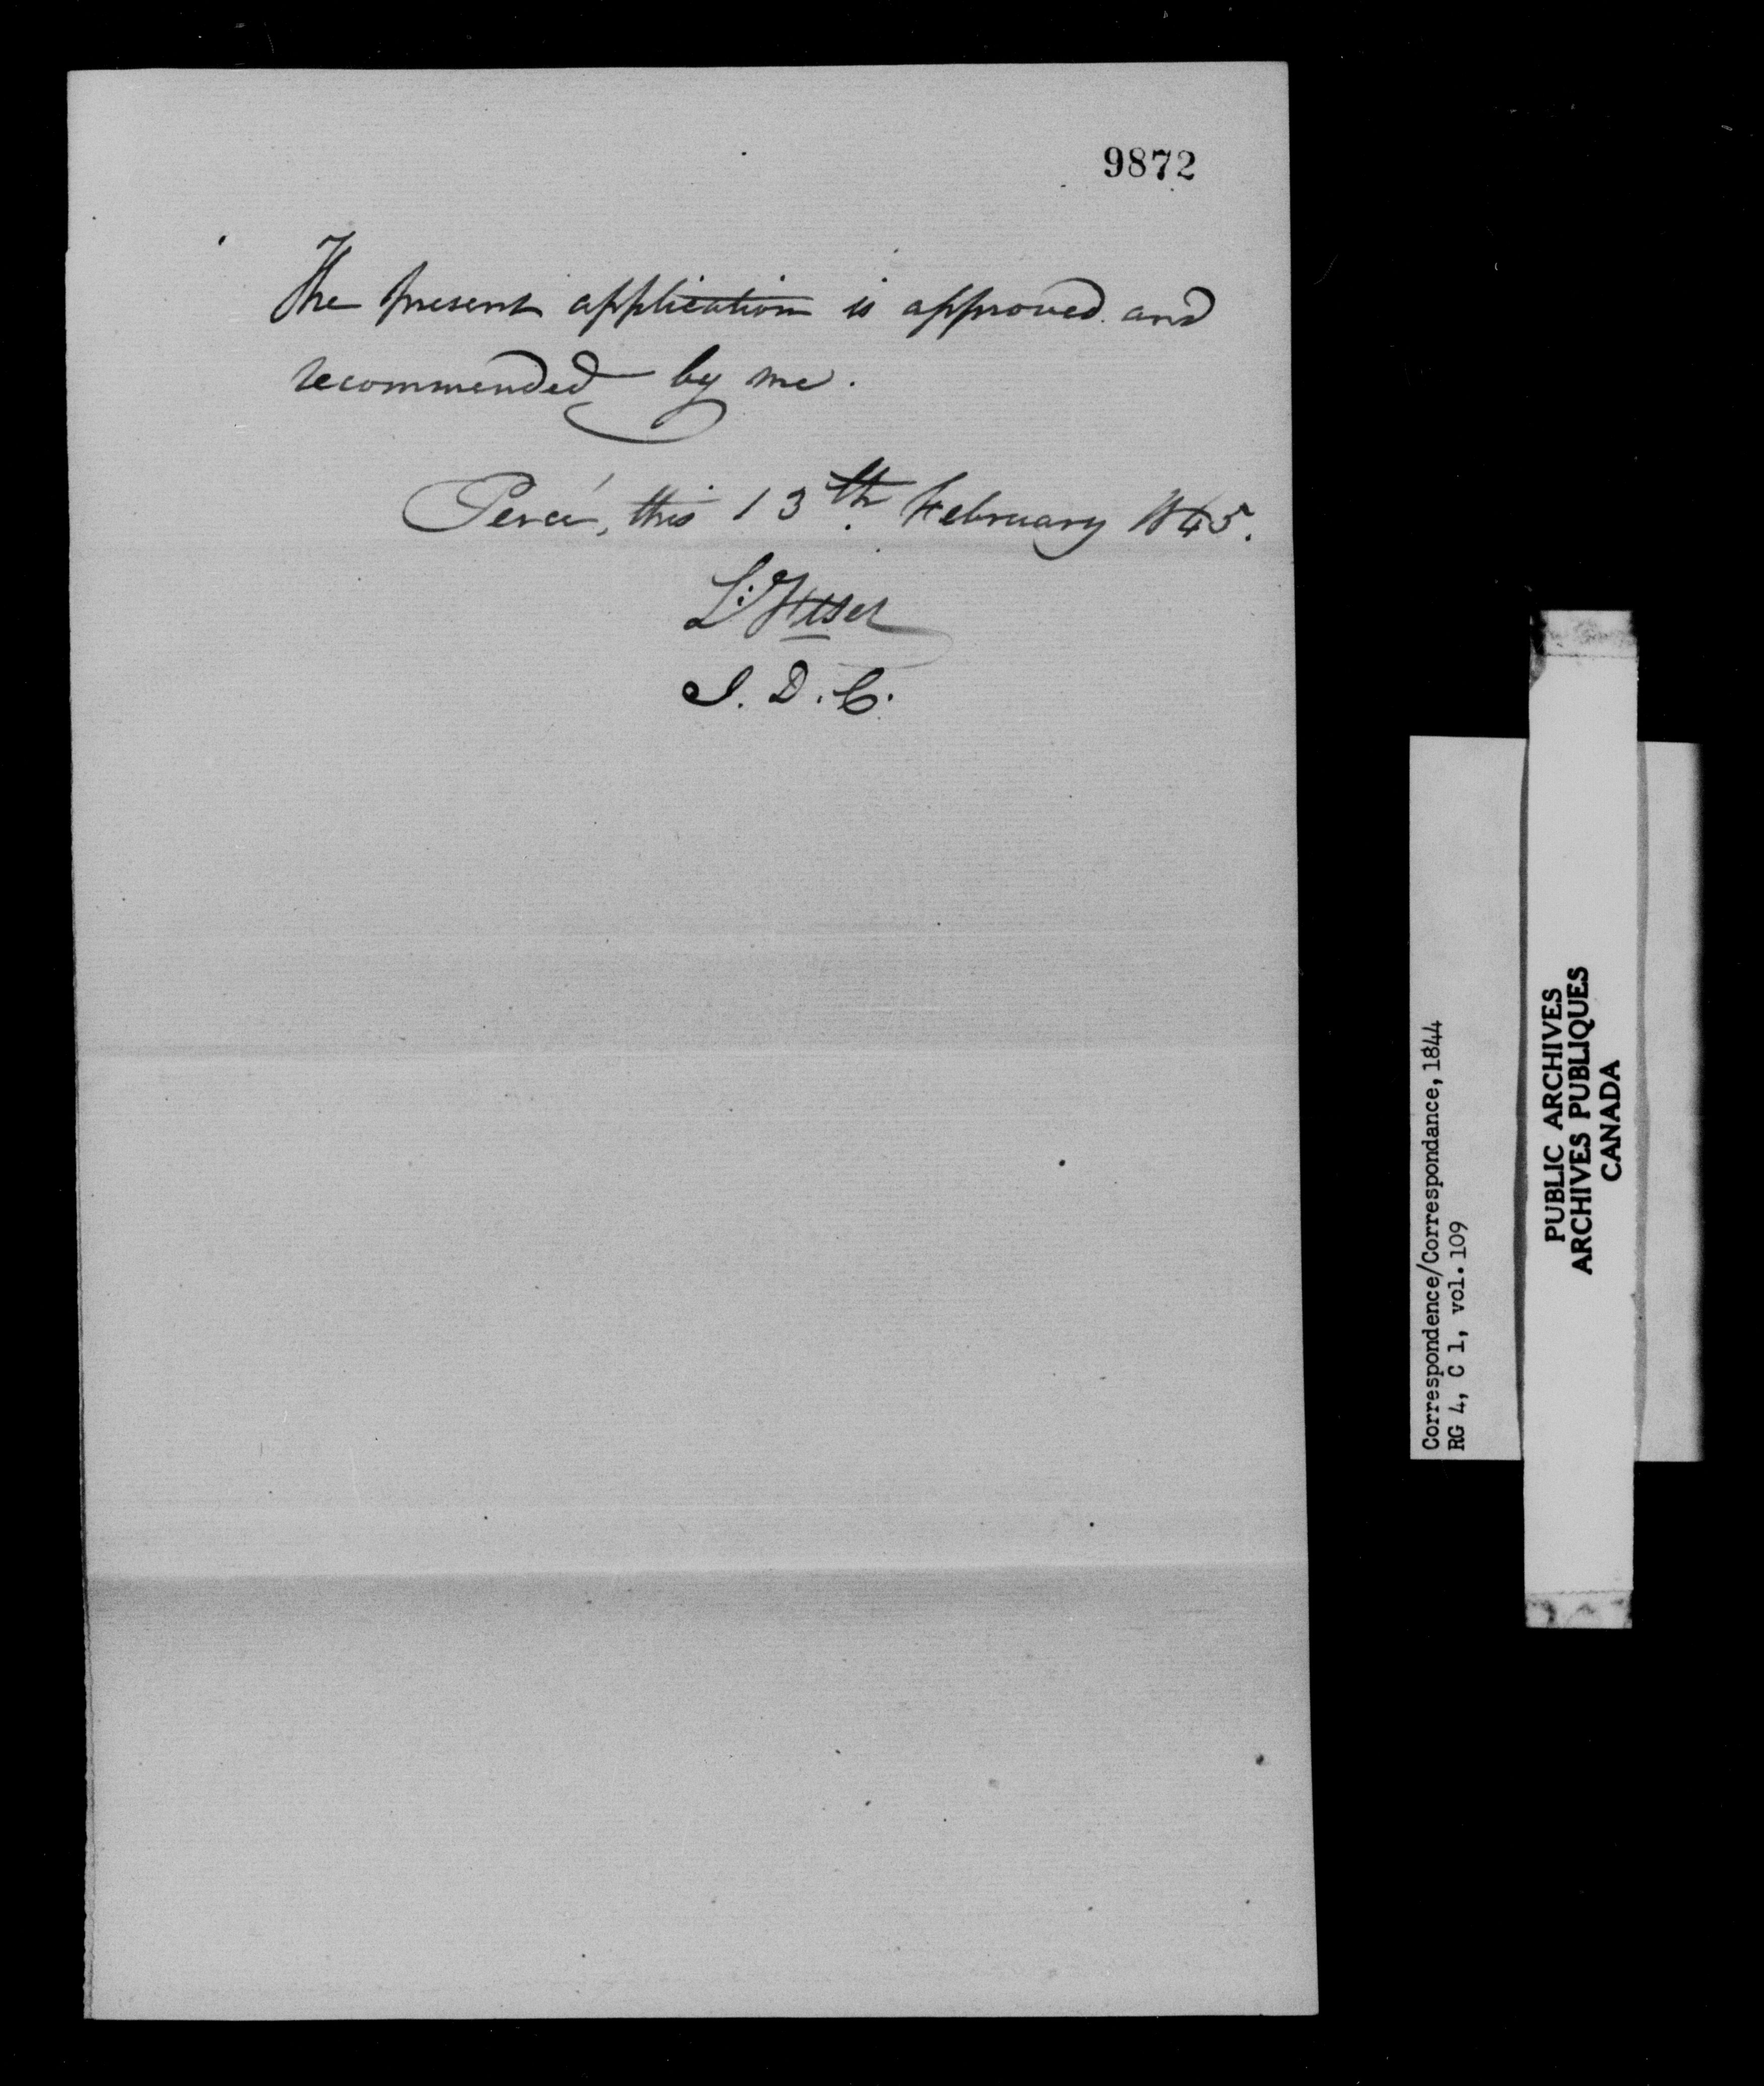 9872
The present application is approved and
recommended by me.
Percé, this 13th February 1845.
L:
J. D. C.
Correspondence/Correspondance, 1844
RG 4, C 1, vol. 109
PUBLIC ARCHIVES
ARCHIVES PUBLIQUES
CANADA